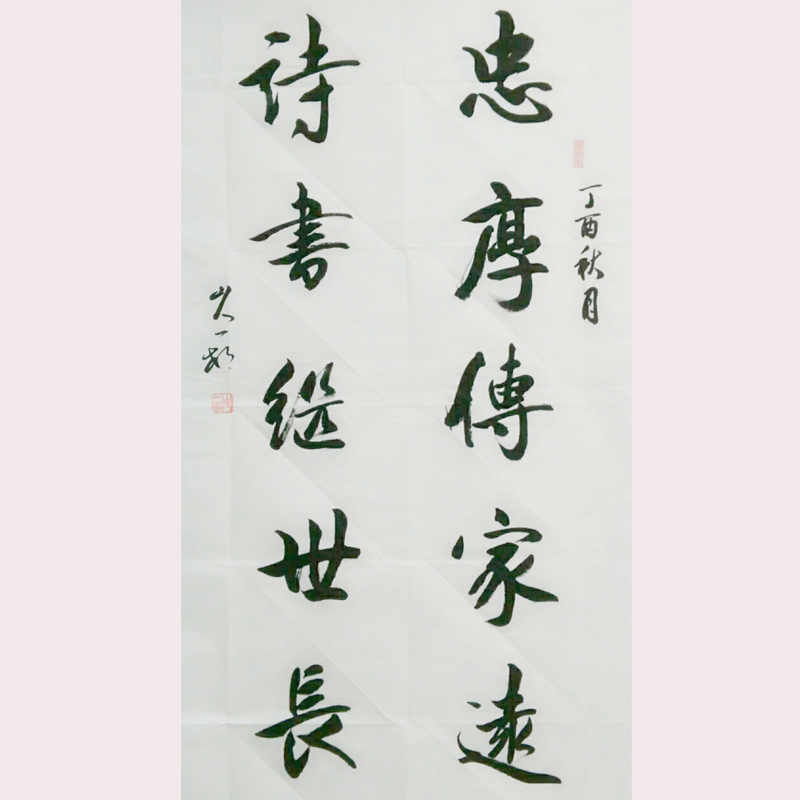 丁酉秋月
忠厚傳家遠
詩書继世長